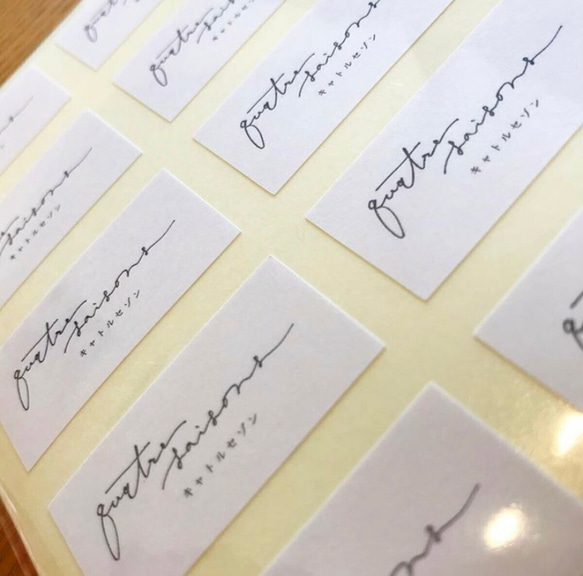 quatre
saisons
キャトルセゾン
quatre
saisons
キャトルセゾン
quatre
saisons
キャトルセゾン
quatre
saisons
キャトルセゾン
quatre
saisons
キャトルセゾン
saisons
キャトルセゾン